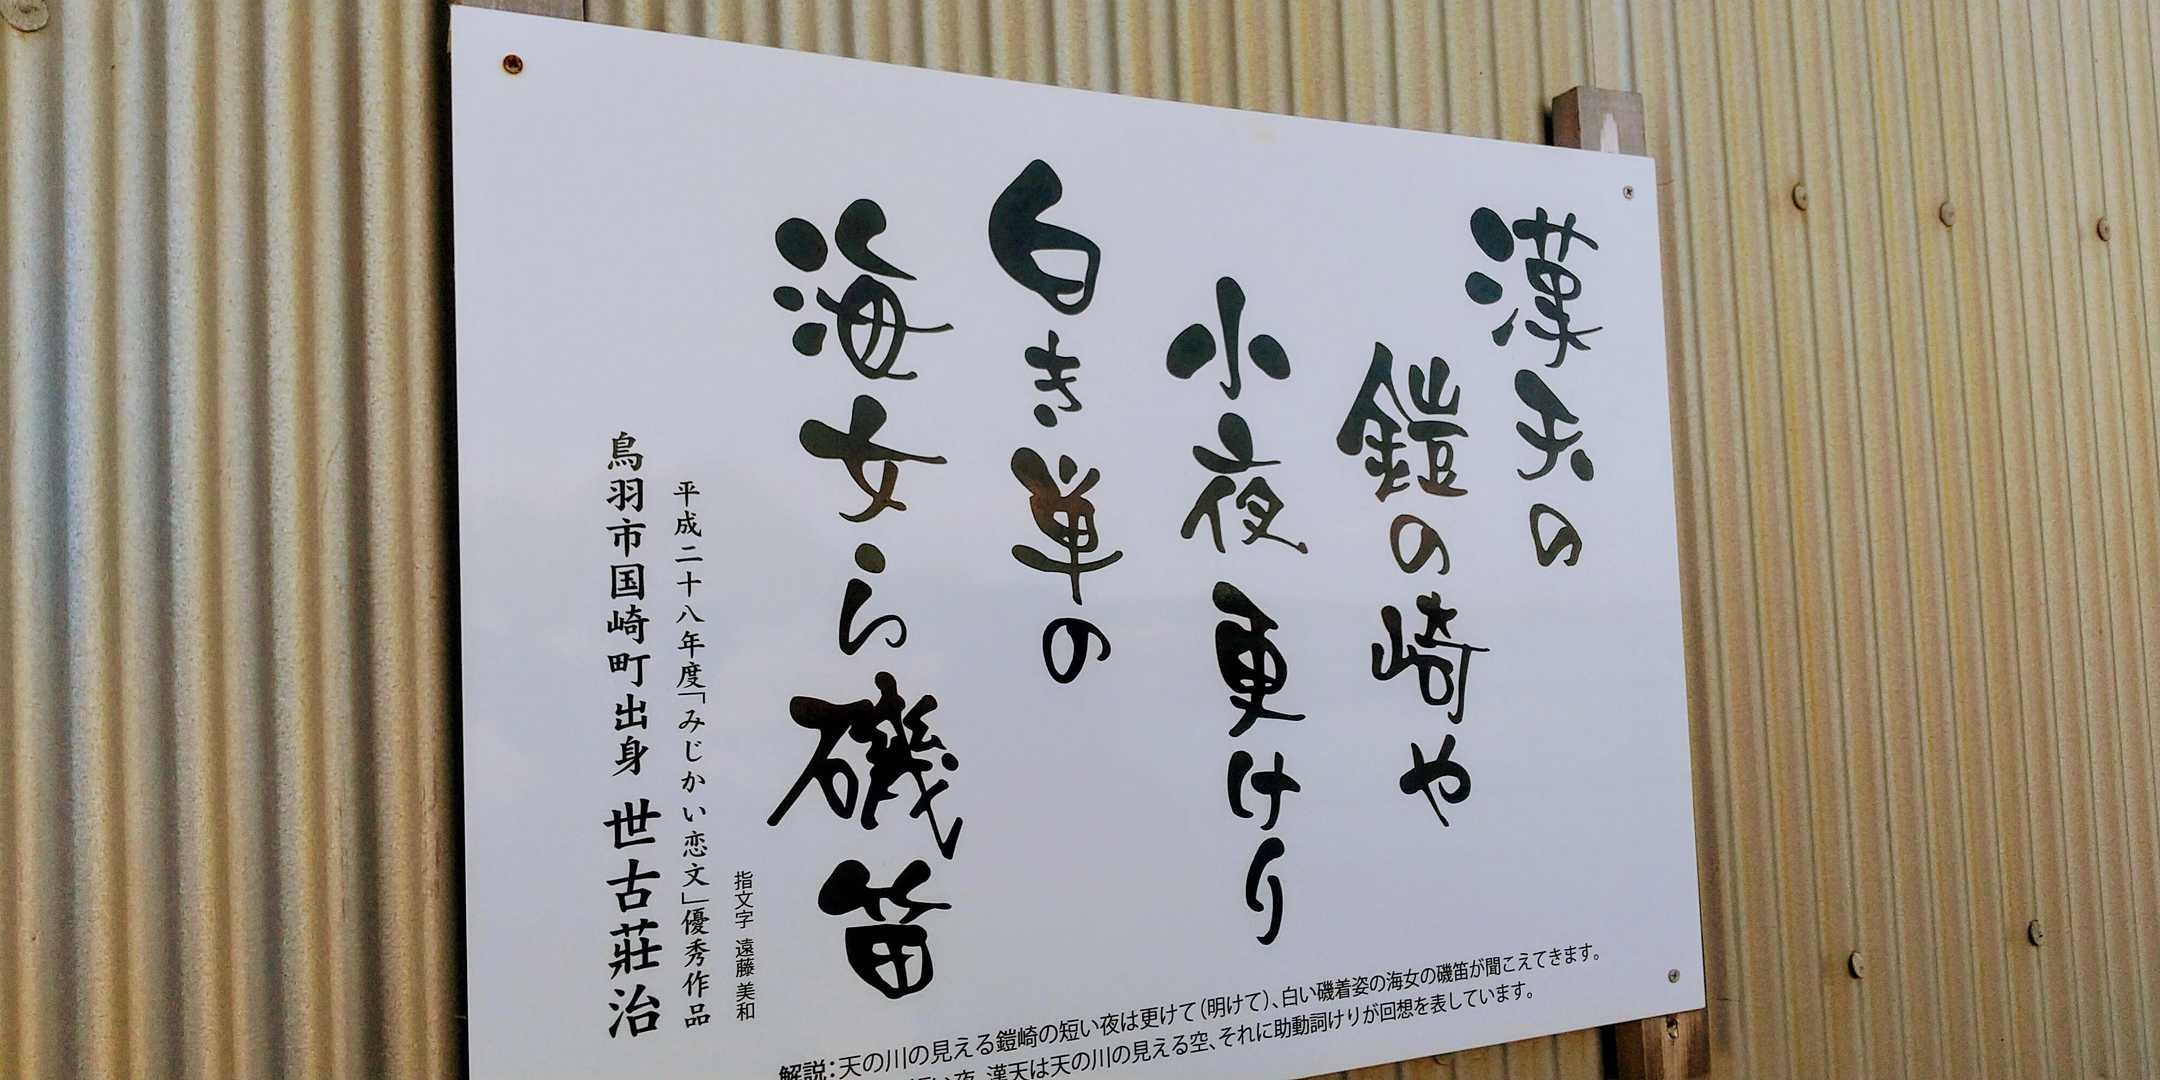 漢天の
鎧の崎や
小夜更けり
白き単の
海女ら磯笛
指文字 遠藤 美和
平成二十八年度「みじかい恋文」優秀作品
鳥羽市国崎町出身 世古莊治
解説:天の川の見える鎧崎の短い夜は更けて(明けて)、白い磯着姿の海女の磯笛が聞こえてきます。
い夜、漢天は天の川の見える空、それに助動詞けりが回想を表しています。